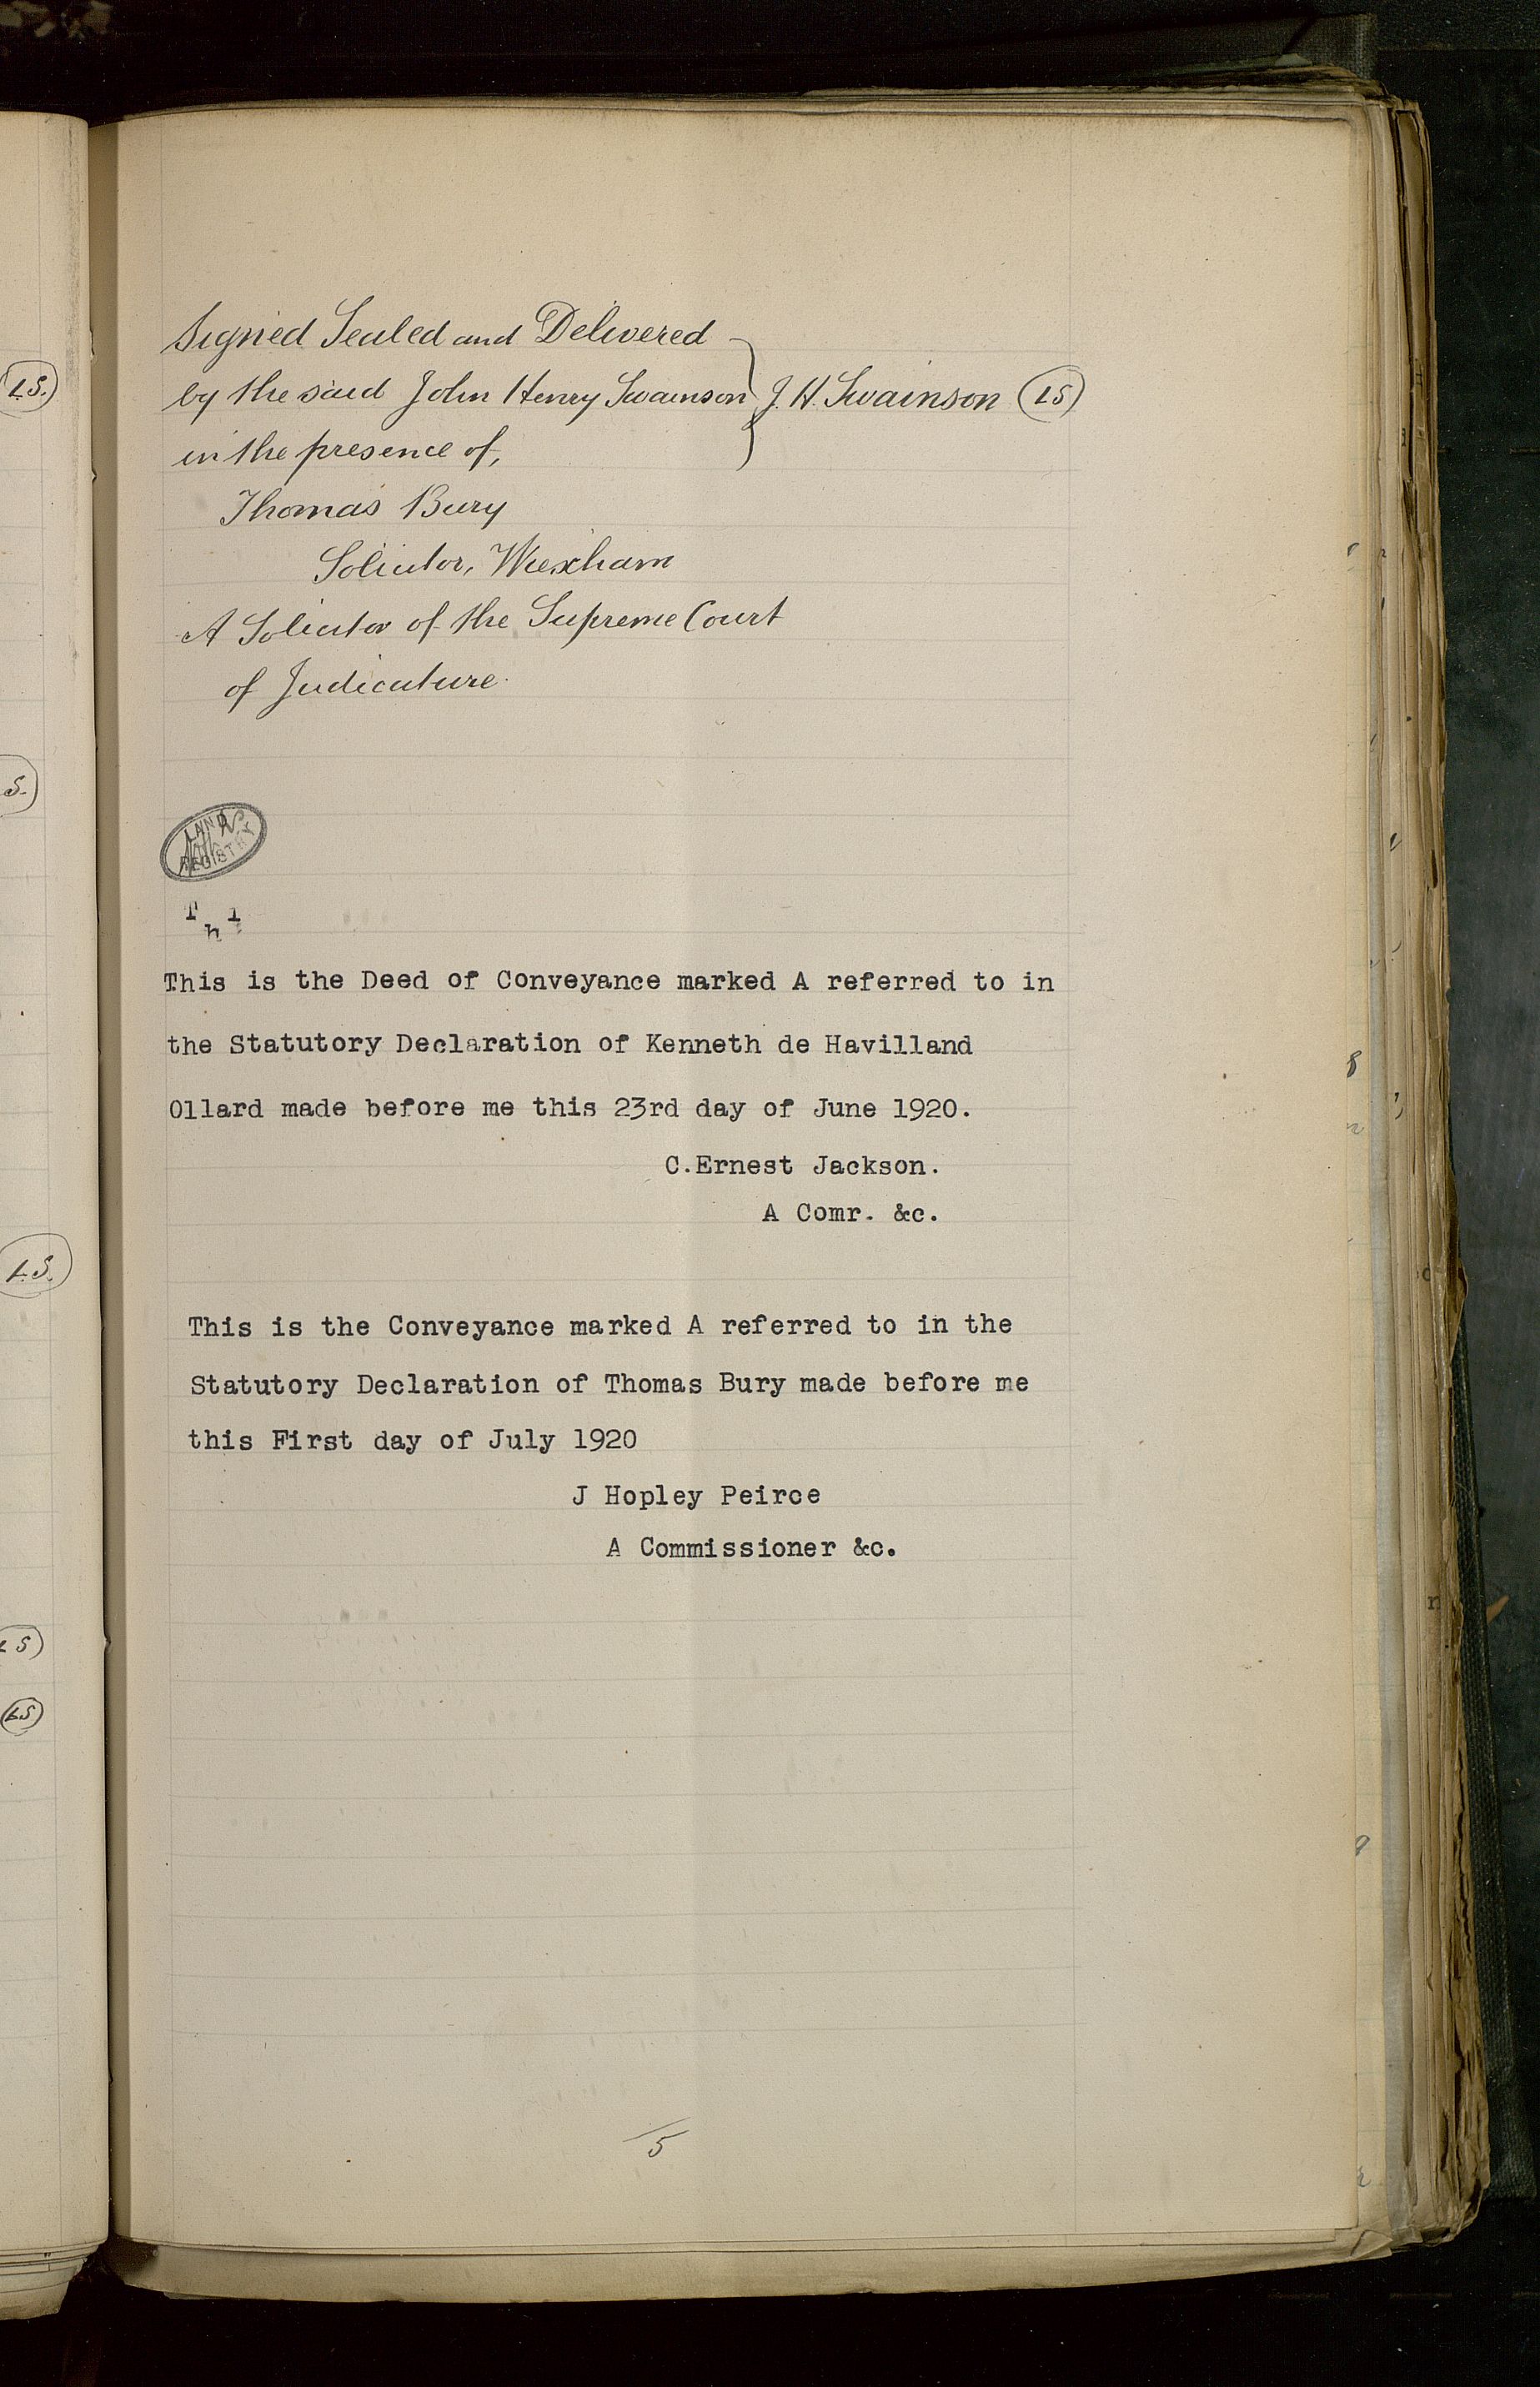 Signed Sealed and Delivered
by the said John Henry Swainson J. H. Swainson LS
in the presence of,
Thomas Bury
Solicitor, Wrexham
A Solicitor of the Supreme Court
of Judicature.
LAND
REGISTRY
This is the Deed of Conveyance marked A referred to in
the Statutory Declaration of Kenneth de Havilland
Ollard made before me this 23rd day of June 1920.
C.Ernest Jackson.
A Comr. &c.
This is the Conveyance marked A referred to in the
Statutory Declaration of Thomas Bury made before me
this First day of July 1920
J Hopley Peirce
A Commissioner &c.
5
L.S.
S.
L.S.
LS
LS